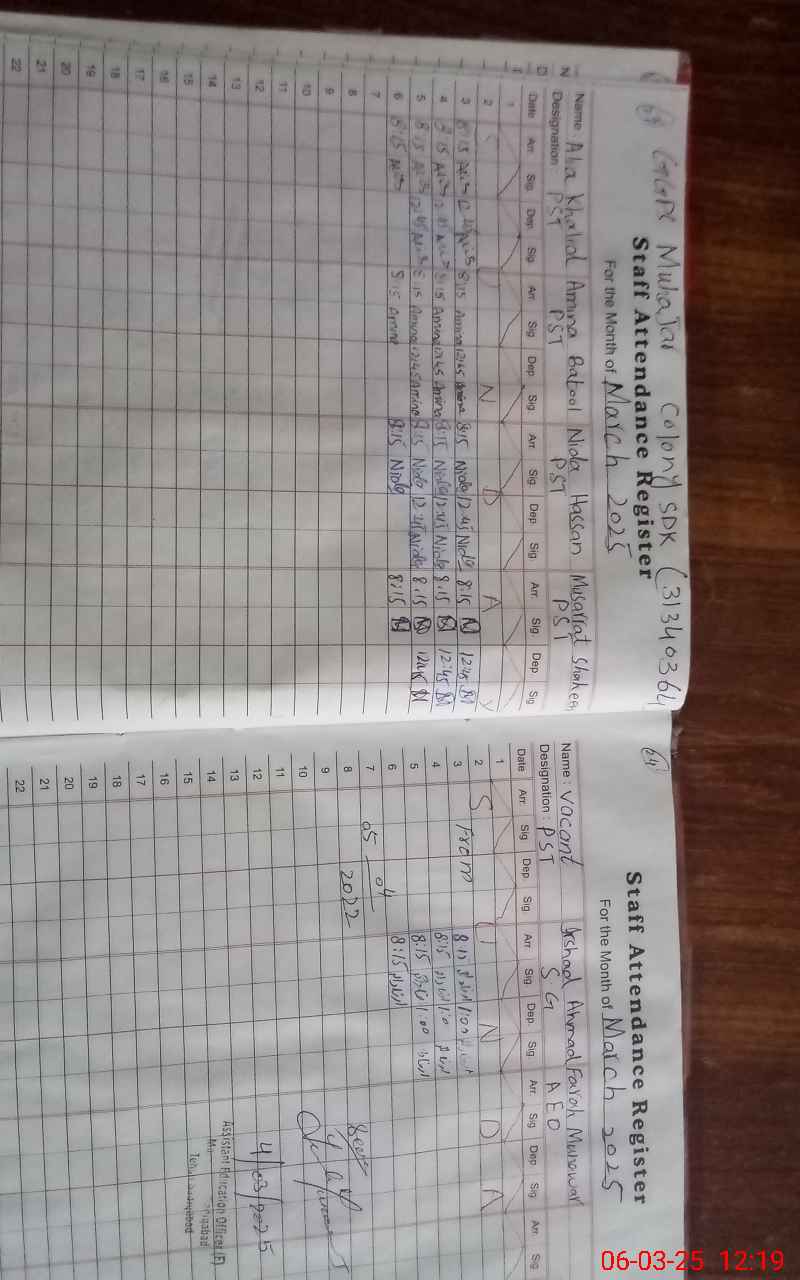 GGPS Muhajar Colony SDK (31340364
Staff Attendance Register
For the Month of March 2025
Name : Khalid Amina Batool Nida Hassan Musarrat Shaheen
Designation PST PST PST PST
Date Arr Sig. Dep. Sig Arr Sig Dep Sig. Arr Sig. Dep Sig. Arr Sig. Dep Sig
1
2 S U N D A Y
3 8:15 12:45 8:15 Amina 12:45 Amina 8:15 Nida 12:45 Nida 8:15 M 12:45 M
4 8:15 8:15 Amina 12:45 Amina 8:15 Nida 12:45 Nida 8:15 M 12:45 M
5 8:15 12:45 8:15 Amina 12:45 Amina 8:15 Nida 12:45 Nida 8:15 M 12:45 M
6 8:15 8:15 Amina 8:15 Nida 8:15 M
7
8
9
10
11
12
13
14
15
16
17
18
19
20
21
22
64
Staff Attendance Register
For the Month of March 2025
Name : Vacant Irshad Ahmad Farah Munawar
Designation : PST S G AEO
Date Arr Sig Dep Sig. Arr Sig. Dep. Sig. Arr Sig. Dep Sig. Arr Sig.
1
2 S U N D A
3 From 8:15 1:00
4 8:15 1:00
5 8:15 1:00
6 8:15
7 05 04
8 2022
9 Seen
10
11
12 4/03/2025
13 Assistant Education Officer (F)
14
15
16
17
18
19
20
21
22
06-03-25 12:19